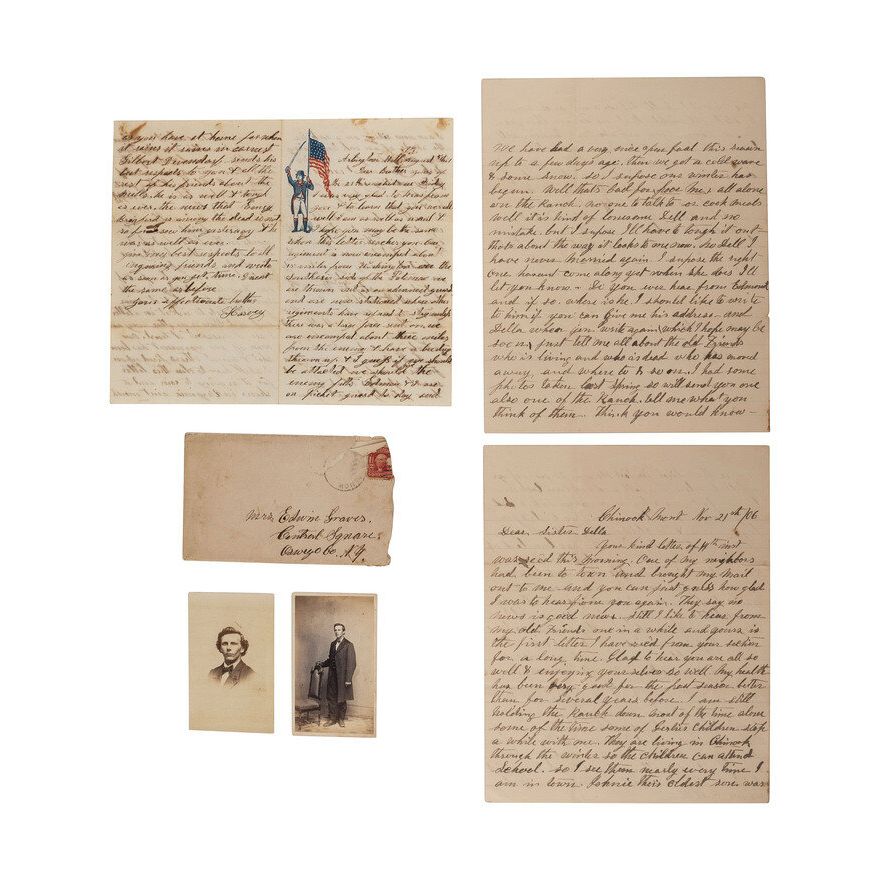 as your have at home for when
it rains it rains in earnest
Gilbert sends his
best respects to you & all the
rest of his friends about the
he is as well & hearty
as ever the news that Henry
is among the dead is not
so for I saw him yesterday & he
was as well as ever
give my best respects to all
enquiring friends and write
as soon as you get time. Direct
the same as before
Yours affectionate brother
Harvey
Arlington Mill August 31st
Dear brother yours of
the
was glad to hear from
you & to learn that you were all
well I am as well as usual &
I hope you may be the same
when this letter reaches you Our
regiment is now encamped about
miles from Washington on the
Southern side of the Potomac we
are thrown out as an advanced guard
and are now stationed where other
regiments have refused to stay
there was a large force sent on, we
are encamped about three miles
from the enemy & have a battery
thrown up & I guess if we should
be attacked we should the
enemy fits & are
on picket guard to day and
We have had a very nice open fall this season
up to a few days ago. then we got a cold wave
& some snow. so I supose our winter has
begun. Well that's bad for poor me, all alone
on the Ranch. no one to talk to or cook meals
well it is kind of lonesome Dell and no
mistake. but I supose I'll have to tough it out
thats about the way it looks to me now. No Dell I
have never married again I supose the right
one hasent come along yet when she does I'll
let you know - Do you ever hear from Edmond
and if so. where is he I should like to write
to him if you can give me his address - and
Della when you write again, which I hope may be
soon, just tell me all about the old friends
who is living and who is dead who has moved
away, and where to & so on. I had some
photos taken last Spring so will send you one
also one of the Ranch. tell me what you
think of them. Think you would know -
Mrs. Edwin Graves.
Central Square.
Oswego Co. N.Y.
Chinook Mont Nov 21st /06
Dear Sister Della
Your kind letter of 4th inst
was recd this morning. One of my neighbors
had been to town and brought my mail
out to me - and you can just guess how glad
I was to hear from you again. They say no
news is good news. still I like to hear from
my old friends one in a while and yours is
the first letter I have recd from your section
for a long time. Glad to hear you are all so
well & enjoying your selves so well. My health
has been very good for the past season better
than for several years before. I am still
holding the Ranch down most of the time alone
some of the time some of Gertie's children stop
a while with me. They are living in Chinook
through the winter so the children can attend
School. so I see them nearly every time I
am in town. Johnie their oldest son was